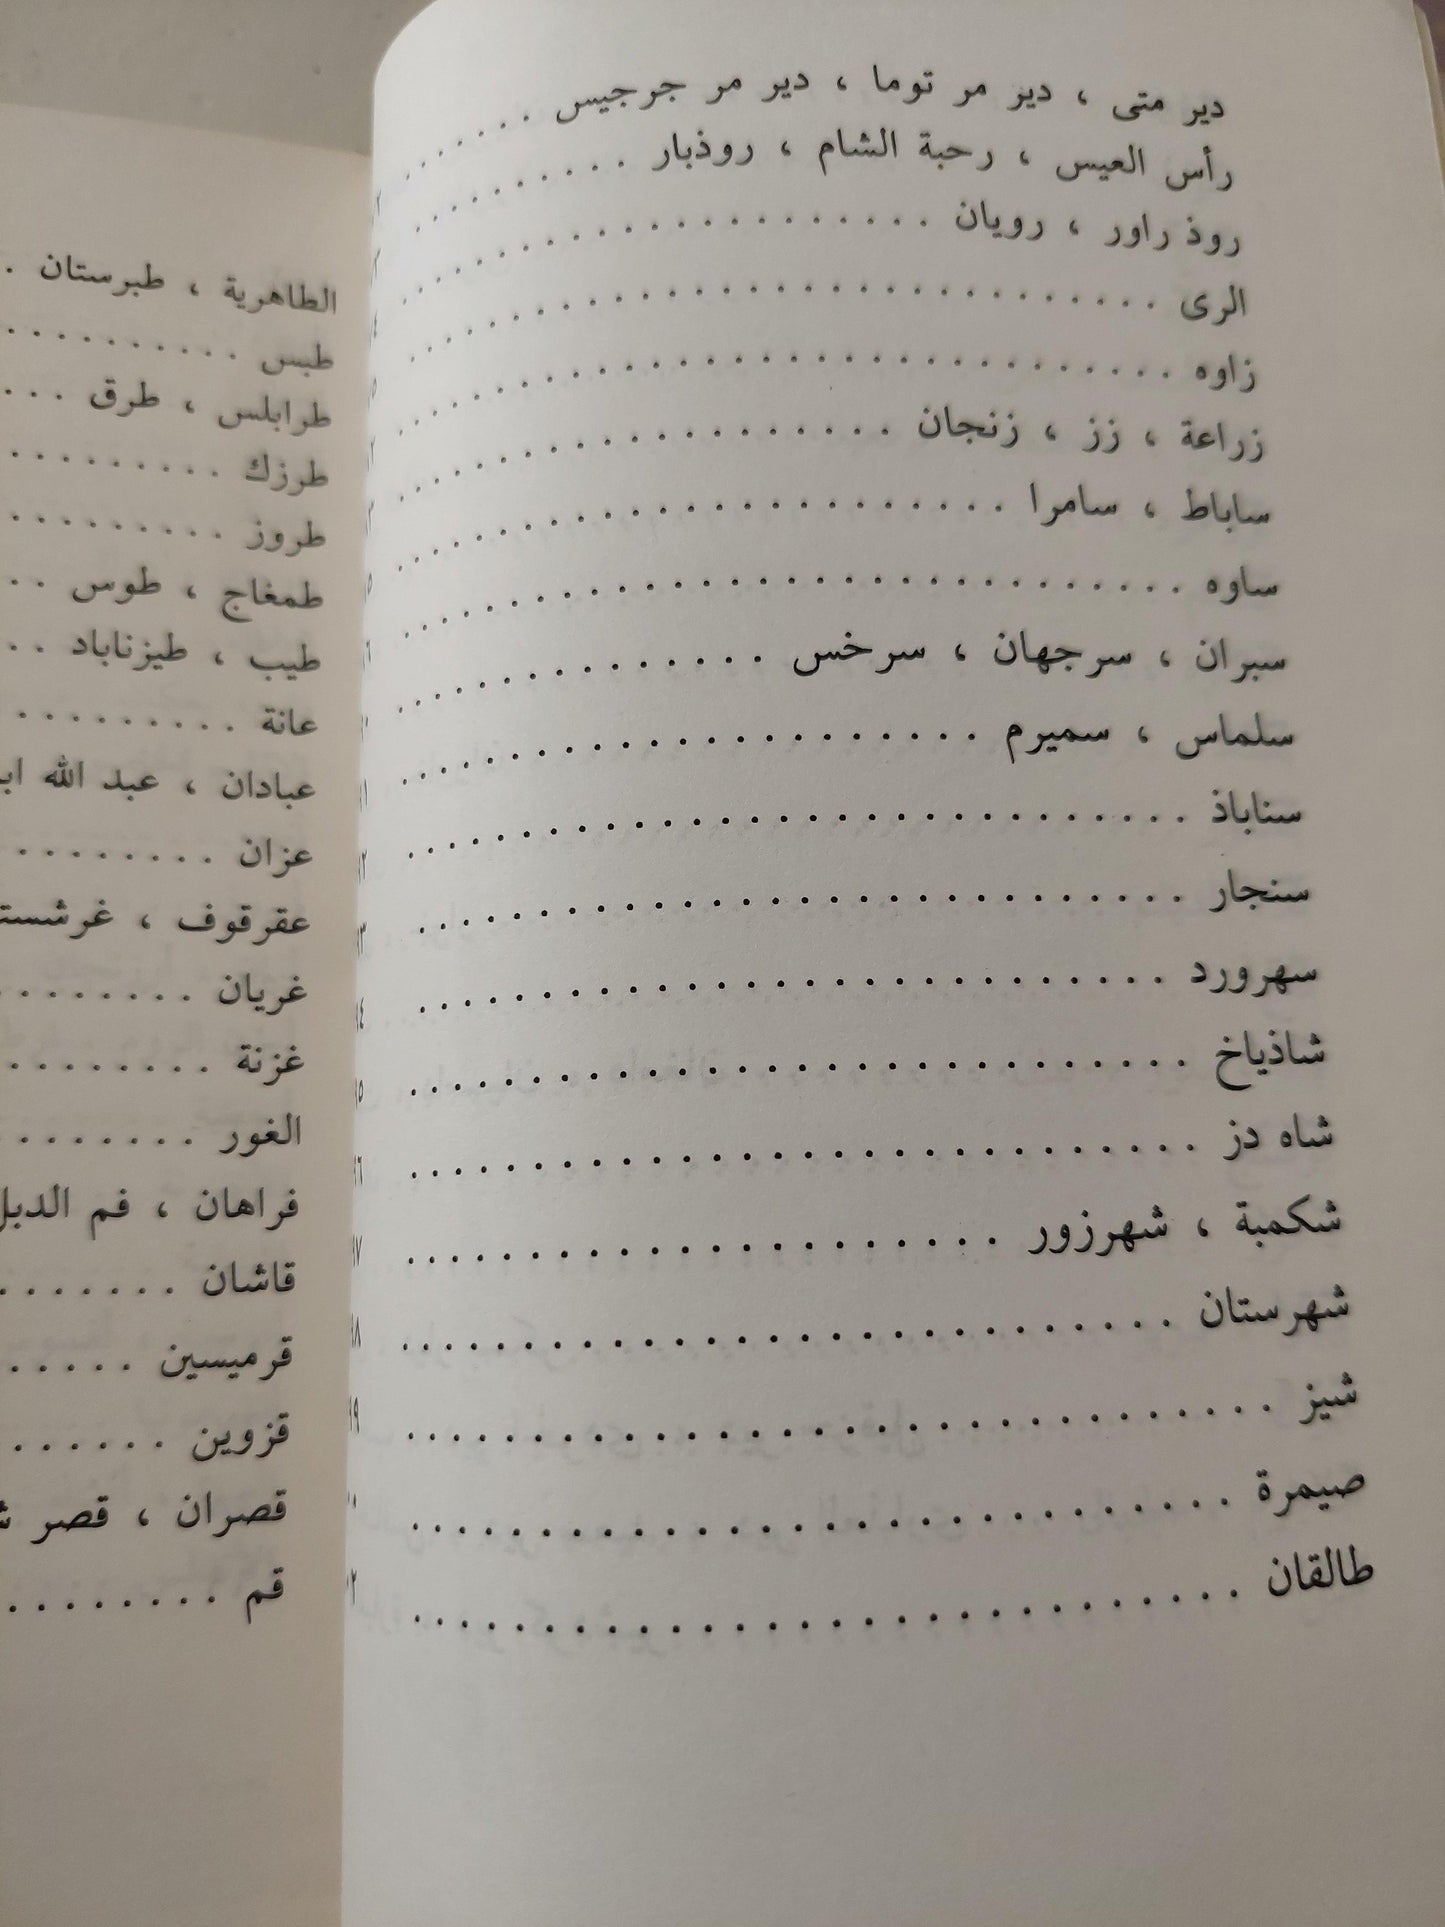 دير متى ، دير مر توما ، دير مر جرجيس . . . . . . . . .
رأس العيس ، رحبة الشام ، روذبار . . . . . . . . . .
روذ راور ، رويان . . . . . . . . . . . . . . . .
الرى . . . . . . . . . . . . . . . . . . . .
زاوه . . . . . . . . . . . . . . . . . . . .
زراعة ، زز ، زنجان . . . . . . . . . . . . . . .
ساباط ، سامرا . . . . . . . . . . . . . . . . .
ساوه . . . . . . . . . . . . . . . . . . . .
سبران ، سرجهان ، سرخس . . . . . . . . . . . . .
سلماس ، سميرم . . . . . . . . . . . . . . . . .
سناباذ . . . . . . . . . . . . . . . . . . . .
سنجار . . . . . . . . . . . . . . . . . . . .
سهرورد . . . . . . . . . . . . . . . . . . . .
شاذياخ . . . . . . . . . . . . . . . . . . . .
شاه دز . . . . . . . . . . . . . . . . . . . .
شكمبة ، شهرزور . . . . . . . . . . . . . . . . .
شهرستان . . . . . . . . . . . . . . . . . . . .
شيز . . . . . . . . . . . . . . . . . . . . .
صيمرة . . . . . . . . . . . . . . . . . . . .
طالقان . . . . . . . . . . . . . . . . . . . .
الطاهرية ، طبرستان .
طبس . . . . . . . . . .
طرابلس ، طرق . . .
طرزك . . . . . . . . .
طروز . . . . . . . . .
طمغاج ، طوس . .
طيب ، طيزناباد . .
عانة . . . . . . . . .
عبادان ، عبد الله
عزان . . . . . . . .
عقرقوف ،
غريان . . . . . . . .
غزنة . . . . . . . .
الغور . . . . . . .
فراهان ، فم
قاشان . . . . . . .
قرميسين . . . . .
قزوين . . . . . .
قصران ، قصر
قم . . . . . . . .